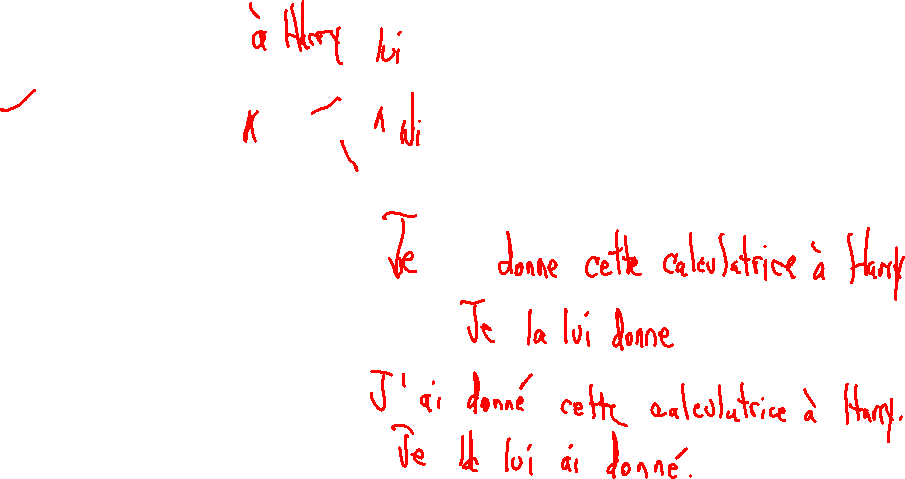 à Harry lui
Je donne cette calculatrice à Harry
Je la lui donne
J'ai donné cette calculatrice à Harry.
Je lui ai donné.